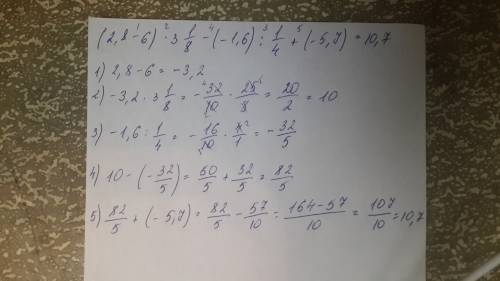 (2,8 - 6) · 3 1/8 - (-1,6) : 1/4 + (-5,7) = 10,7
1) 2,8 - 6 = -3,2
2) -3,2 · 3 1/8 = - 32/10 · 25/8 = 20/2 = 10
3) -1,6 : 1/4 = - 16/10 · 4/1 = - 32/5
4) 10 - (- 32/5) = 50/5 + 32/5 = 82/5
5) 82/5 + (-5,7) = 82/5 - 57/10 = 164-57/10 = 107/10 = 10,7